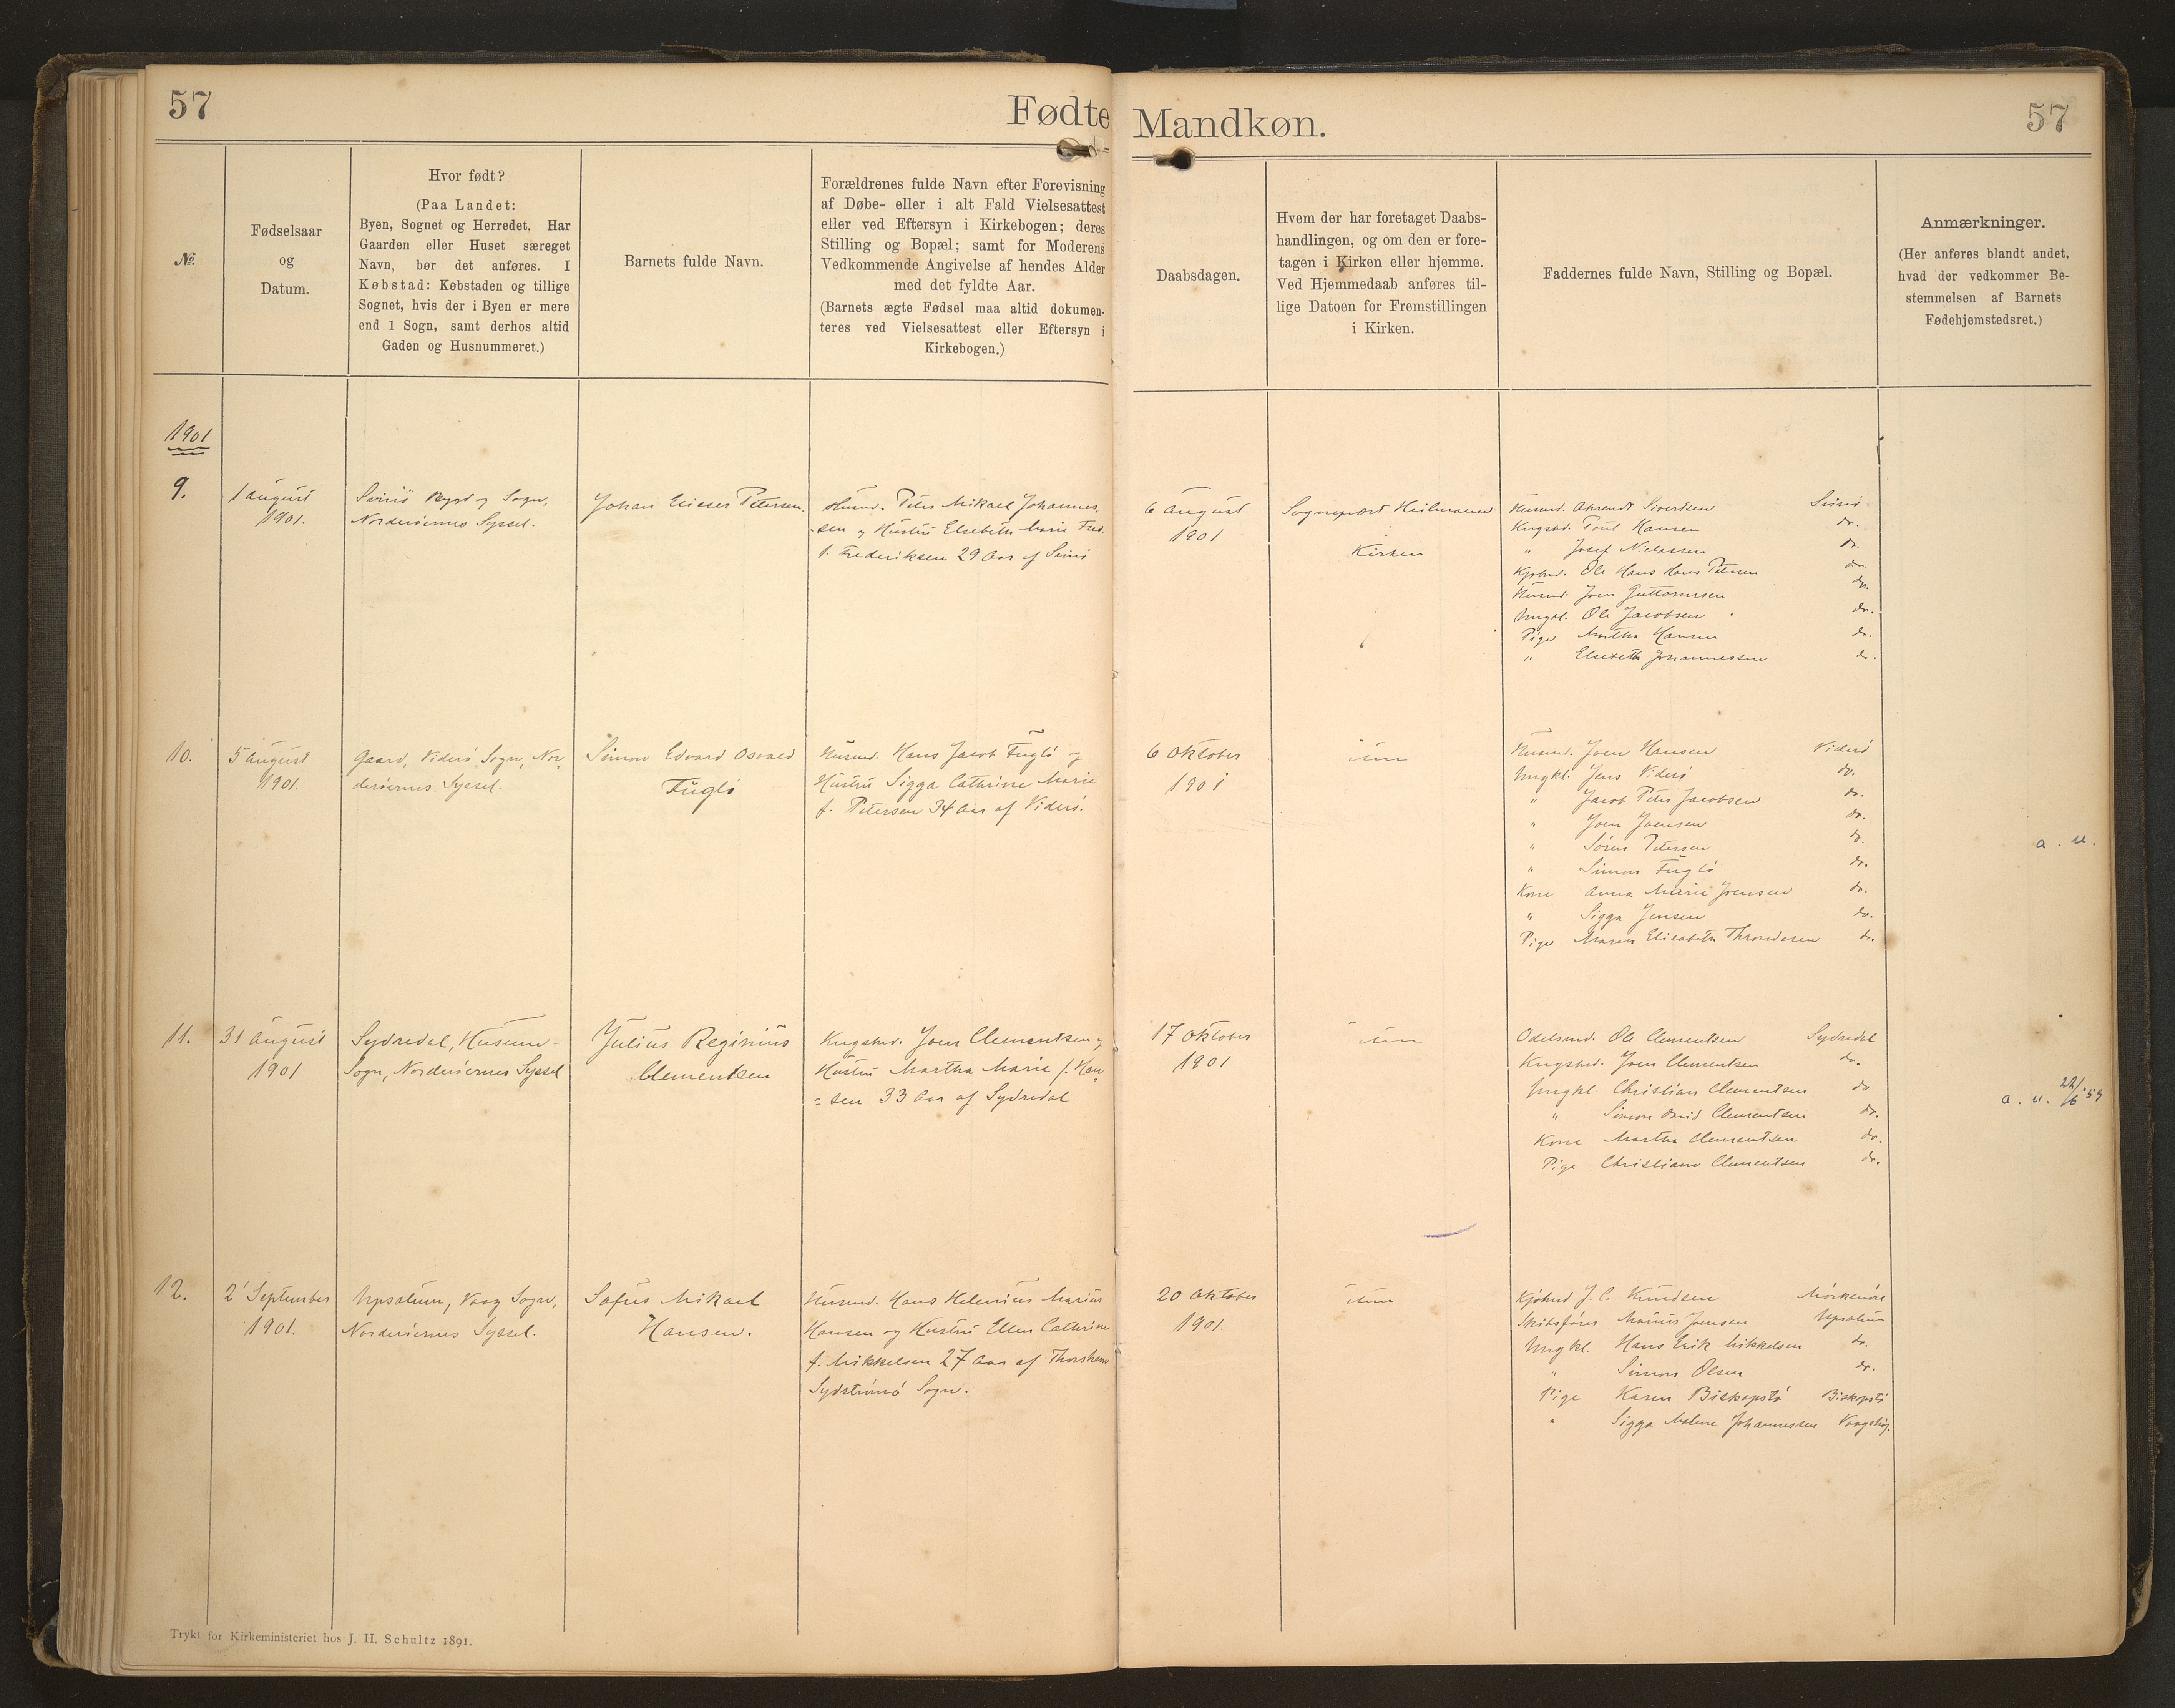 57
Fødte
Mandkøn.
57
№
Fødselsaar
og
Datum.
Hvor født?
(Paa Landet:
Byen, Sognet og Herredet. Har
Gaarden eller Huset særeget
Navn, bør det anføres. I
Købstad: Købstaden og tillige
Sognet, hvis der i Byen er mere
end 1 Sogn, samt derhos altid
Gaden og Husnummeret.)
Barnets fulde Navn.
Forældrenes fulde Navn efter Forevisning
af Døbe- eller i alt Fald Vielsesattest
eller ved Eftersyn i Kirkebogen; deres
Stilling og Bopæl; samt for Moderens
Vedkommende Angivelse af hendes Alder
med det fyldte Aar.
(Barnets ægte Fødsel maa altid dokumen-
teres ved Vielsesattest eller Eftersyn i
Kirkebogen.)
Daabsdagen.
Hvem der har foretaget Daabs-
handlingen, og om den er fore-
tagen i Kirken eller hjemme.
Ved Hjemmedaab anføres til-
lige Datoen for Fremstillingen
i Kirken.
Faddernes fulde Navn, Stilling og Bopæl.
Anmærkninger.
(Her anføres blandt andet,
hvad der vedkommer Be-
stemmelsen af Barnets
Fødehjemstedsret.)
1901
9.
1 August
1901.
Svinö Bygd og Sogn,
Norderöernes Syssel.
Johan Petersen.
Husmd. Peter Mikael Johannes-
sen og Hustru Elsebeth Marie
f. Frederiksen 29 Aar af Svinö
6 August
1901
Sognepræst Heilmann
Kirken
Husmd. Ahrendt Sivertsen Svinö
Kngsbd. Poul Hansen do.
" Josef Nielassen do.
Ole Hans Petersen do.
Husmd. Joen Guttormsen do.
Ungkl. Ole Jacobsen do.
Pige Martha Hansen do.
" Elsebeth Johannessen do.
10.
5 August
1901.
Gaard, Viderö Sogn, Nor-
deröernes Syssel.
Simon Edvard Osvald
Fuglö
Husmd. Hans Jacob Fuglö og
Hustru Sigga Cathrine Marie
f. Petersen 34 Aar af Viderö.
6 Oktober
1901
Husmd. Joen Hansen Viderö
Ungkl. Jens Viderö do.
" Jacob Peter Jacobsen do.
" Joen Joensen do.
" Sören Petersen do.
" Simon Fuglö do.
Kone Anna Marie Joensen do.
" Sigga Jensen do.
Pige Maren Elisabeth Throndesen do.
a. u.
11.
31 August
1901
Sydredal, Husum-
Sogn, Norderöernes Syssel
Julius Reginius
Clementsen
Kngsbd. Joen Clementsen og
Hustru Martha Marie f. Han-
sen 33 Aar af Sydredal
17 Oktober
1901
Odelsmd. Ole Clementsen Sydredal
Kngsbd. Joen Clementsen do.
Ungkl. Christian Clementsen do
" Simon David Clementsen do.
Kone Martha Clementsen do.
Pige Christiane Clementsen do.
a. u. 22/6 59
12.
2 September
1901.
Upsalum, Vaag Sogn,
Norderöernes Syssel.
Sofus Mikael
Hansen.
Husmd. Hans Helenius Marius
Hansen og Hustru Ellen Cathrine
f. Mikkelsen 27 Aar af Thorshavn
Sydströmö Sogn.
20 Oktober
1901.
J. C. Knudsen Mörkenöre
Skibsförer Marius Joensen Upsalum
Ungkl. Hans Erik Mikkelsen do.
" Simon Olsen do.
Pige Karen Biskopstö Biskopstö
" Sigga Malene Johannessen
Trykt for Kirkeministeriet hos J. H. Schultz 1891.